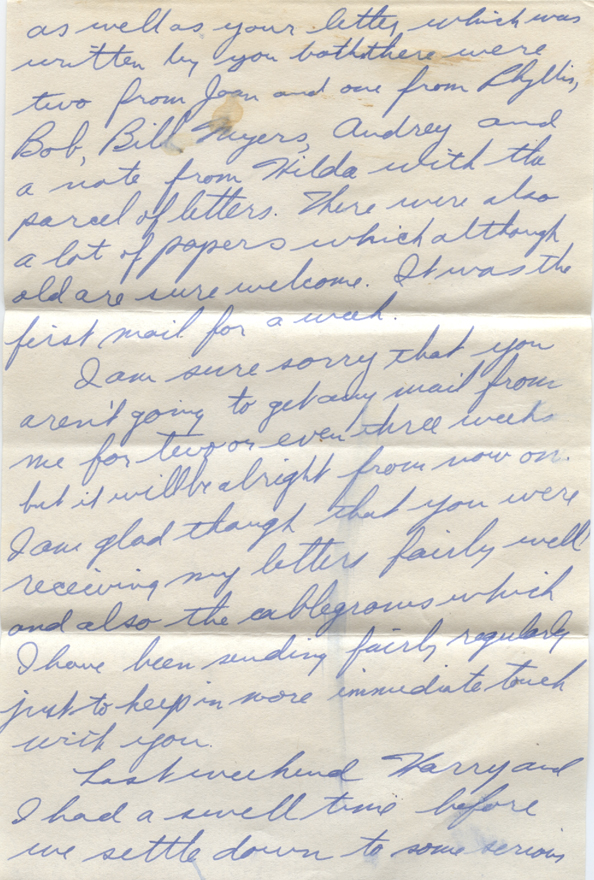 as well as your letter, which was
written by you both there were
two from Joan and one from Phyllis,
Bob, Bill Myers, Audrey and
a note from Hilda with the
parcel of letters. There were also
a lot of papers which although
old are sure welcome. It was the
first mail for a week.
I am sure sorry that you
aren't going to get any mail from
me for two or even three weeks
but it will be alright from now on.
I am glad though that you were
receiving my letters fairly well
and also the cablegrams which
I have been sending fairly regularly
just to keep in more immediate touch
with you.
Last weekend Harry and
I had a swell time before
we settle down to some serious